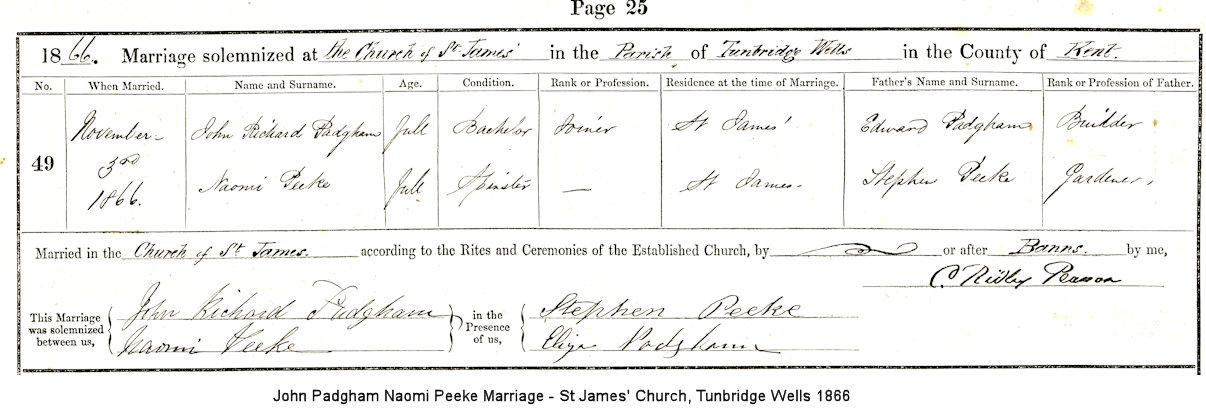 Page 25
1866. Marriage solemnized at the Church of St. James' in the Parish of Tunbridge Wells in the County of Kent.
No. When Married. Name and Surname. Age. Condition. Rank or Profession. Residence at the time of Marriage. Father's Name and Surname. Rank or Profession of Father.
November John Richard Padgham Full Bachelor Joiner St James' Edward Padgham Builder
49 3rd
1866. Naomi Peeke Full Spinster — St James. Stephen Peeke Gardener,
Married in the Church of St. James. according to the Rites and Ceremonies of the Established Church, by or after Banns. by me,
C. Ridley Pearson
This Marriage was solemnized between us,
John Richard Padgham
Naomi Peeke
in the Presence of us,
Stephen Peeke
Eliza Padgham
John Padgham Naomi Peeke Marriage - St James' Church, Tunbridge Wells 1866